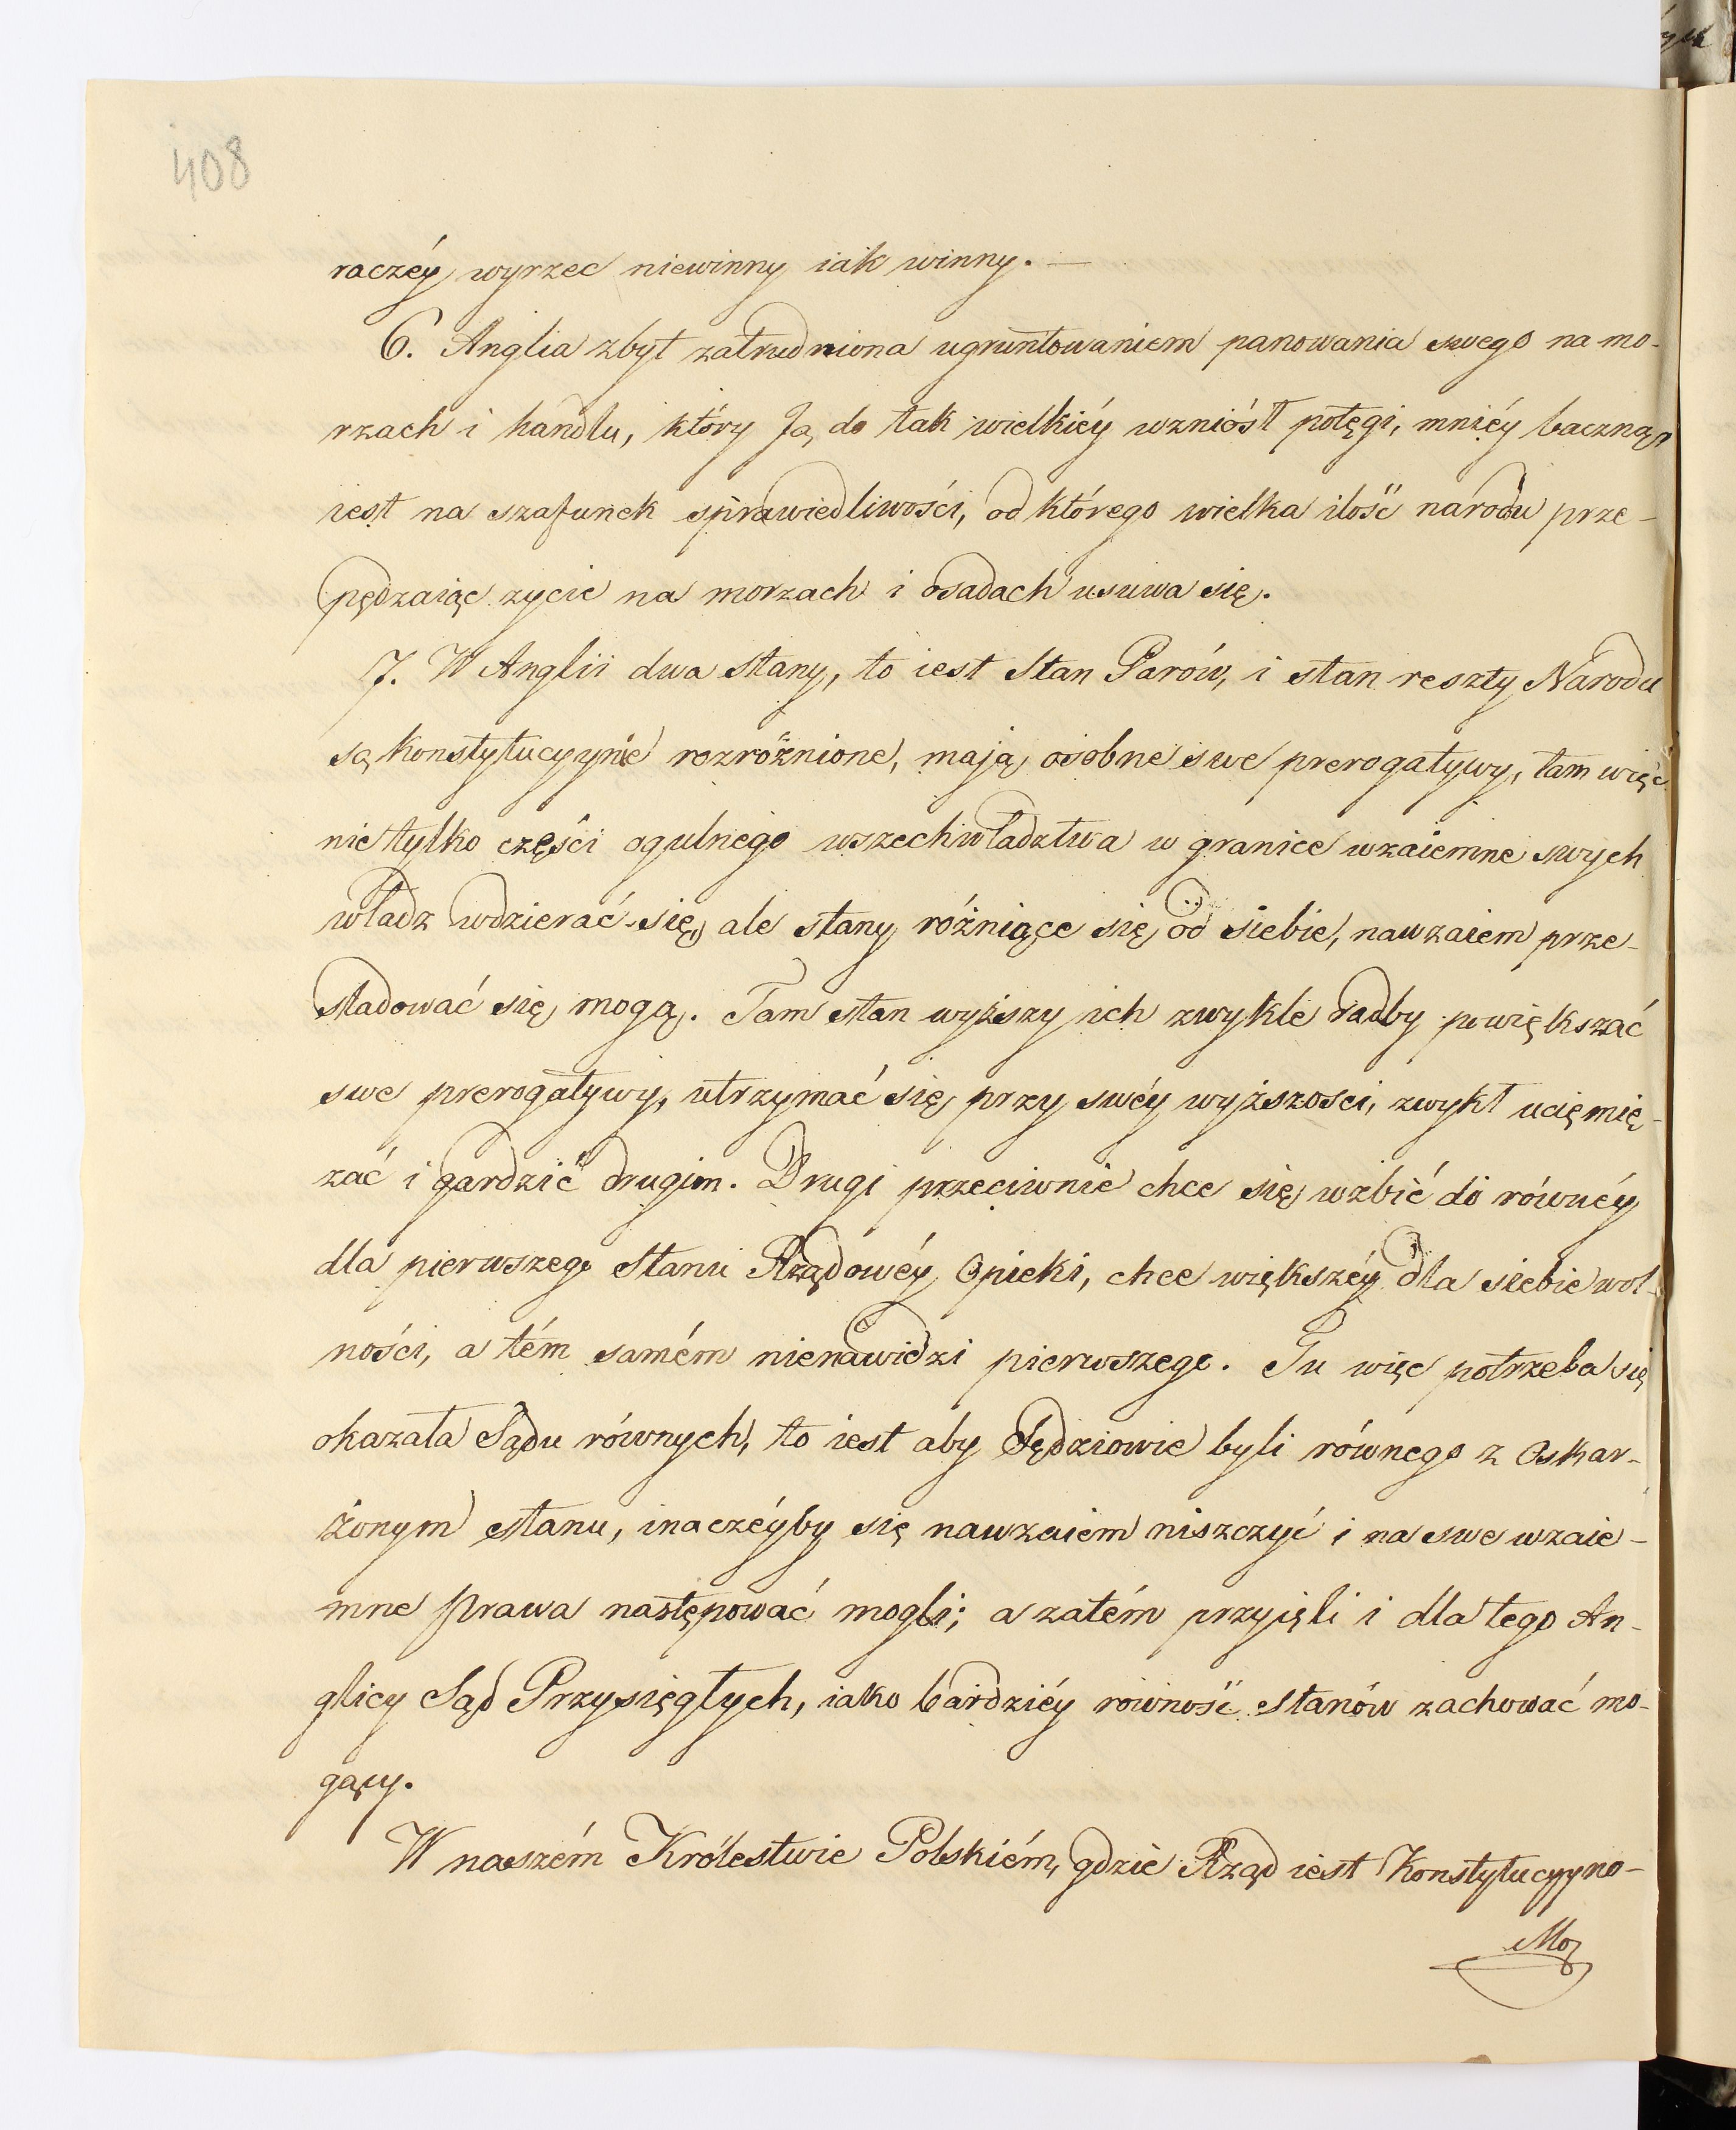 408
raczéy wyrzec niewinny iak winny. —
6. Anglia zbyt zatrudniona ugruntowaniem panowania swego na mo-
rzach i handlu, który Ją do tak wielkiéy wzniósł potęgi, mniéy baczną
iest na szafunek sprawiedliwości, od którego wielka ilość narodu prze-
pędzaiąc zycie na morzach i osadach usuwa się.
7. W Anglii dwa stany, to iest Stan Parów, i stan reszty Narodu
są konstytucyynie rozróżnione, mają osobne swe prerogatywy, tam więc
nie tylko części ogulnego wszechwładztwa w granice wzaiemne swych
władz wdzierać się, ale stany różniące się od siebie, nawzaiem prze-
śladować się mogą. Tam stan wyższy ich zwykle radby powiększać
swe prerogatywy, utrzymać się przy swéy wyższości, zwykł uciemię-
zać i gardzić drugim. Drugi przeciwnie chce się wzbić do równéy
dla pierwszego Stanu Rządowéy Opieki, chce większéy dla siebie wol-
ności, a tém samém nienawidzi pierwszego. Tu więc potrzeba się
okazała Sądu równych, to iest aby Sędziowie byli równego z Oskar-
żonym stanu, inaczéyby się nawzaiem niszczyć i na swe wzaie-
mne prawa następować mogli; a zatém przyięli i dla tego An-
glicy Sąd Przysięgłych, iako bardziéy równość stanów zachować mo-
gący.
W naszém Królestwie Polskiém, gdzie Rząd iest Konstytucyyno-